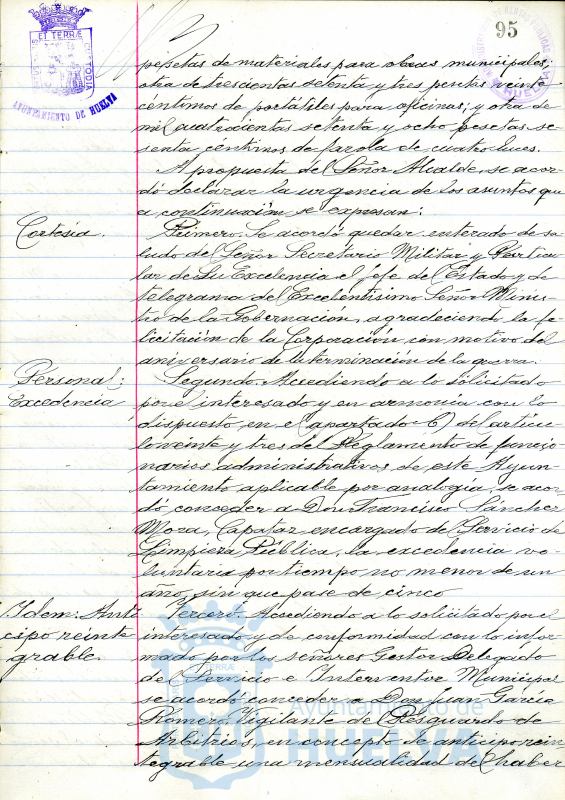 95
AYUNTAMIENTO DE HUELVA
pesetas de materiales para obras municipales;
otra de trescientas setenta y tres pesetas veinte
centimos de portátiles para oficinas; y otra de
mil cuatrocientas setenta y ocho pesetas se-
senta centimos de farola de cuatro luces.
A propuesta del Señor Alcalde, se acor-
dó declarar la urgencia de los asuntos que
a continuación se expresan:
Cortesia.
Primero. Se acordó quedar enterado de sa-
ludo del Señor Secretario Militar y Particu-
lar de Su Excelencia el Jefe del Estado y de
telegrama del Excelentisimo Señor Minis-
tro de la Gobernación, agradeciendo la fe-
licitación de la Corporación con motivo del
aniversario de la terminación de la guerra.
Personal:
Excedencia
Segundo. Accediendo a lo solicitado
por el interesado y en armonia con lo
dispuesto en el apartado C) del articu-
lo veinte y tres del Reglamento de funcio-
narios administrativos de este Ayun-
tamiento aplicable por analogia, se acor-
dó conceder a Don Francisco Sánchez
Mora, Capataz encargado del Servicio de
Limpieza Pública, la excedencia vo-
luntaria por tiempo no menor de un
año, sin que pase de cinco
Idem: Anti-
cipo reinte
grable.
Tercero. Accediendo a lo solicitado por el
interesado y de conformidad con lo infor-
mado por los señores Gestor Delegado
del Servicio e Interventor Municipal
se acordó conceder a Don José García
Romero, Vigilante del Resguardo de
Arbitrios, en concepto de anticipo rein-
tegrable una mensualidad de haber
Ayuntamiento de
HUELVA